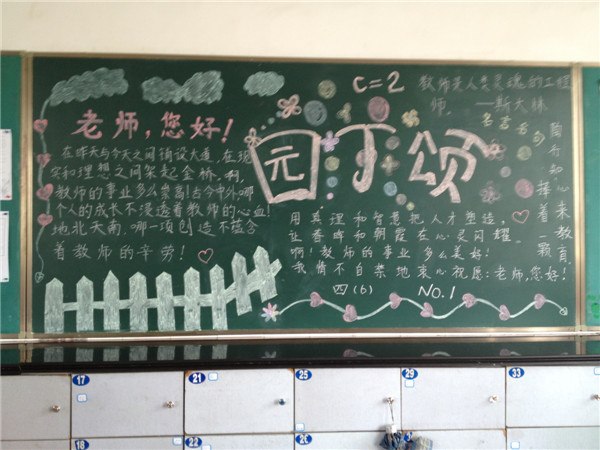 老师，您好！
在昨天与今天之间铺设大道，在现
实和理想之间架起金桥。啊，
教师的事业多么崇高！古今中外，哪
个人的成长不浸透着教师的心血！
地北天南，哪一项创造不蕴含
着教师的辛劳！
园丁颂
C=2
教师是人类灵魂的工程
师 —斯大林
名言名句
陶行知
捧着一颗心来
用真理和智慧把人才塑造，
让春晖和朝霞在心灵闪耀。
啊！教师的事业多么美好！
我情不自禁地衷心祝愿：老师，您好！
四（6） NO.1
17
21
25
29
33
18
22
26